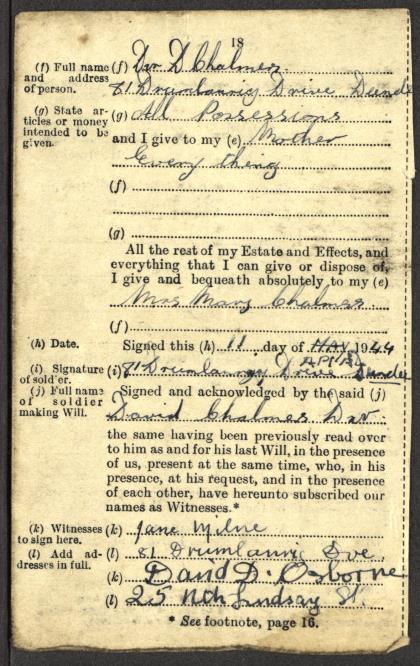 18
(f) Full name and address of person.
(f) Dvr D Chalmers
81 Drumlanrig Drive Dundee
(g) State articles or money intended to be given.
(g) All Possessions
and I give to my (e) Mother
Every thing
(f)
(g)
All the rest of my Estate and Effects, and
everything that I can give or dispose of,
I give and bequeath absolutely to my (e)
Mrs Mary Chalmers
(f)
(h) Date.
Signed this (h) 11 day of MAY, 1944
APRIL
(i) Signature of soldier.
(i) 81 Drumlanrig Drive Dundee
(j) Full name of soldier making Will.
Signed and acknowledged by the said (j)
David Chalmers Dvr
the same having been previously read over
to him as and for his last Will, in the presence
of us, present at the same time, who, in his
presence, at his request, and in the presence
of each other, have hereunto subscribed our
names as Witnesses.*
(k) Witnesses to sign here.
(k) Jane Milne
(l) Add addresses in full.
(l) 81 Drumlanrig Dve
(k) David D. Osborne
(l) 25 Nth Lindsay St.
* See footnote, page 16.